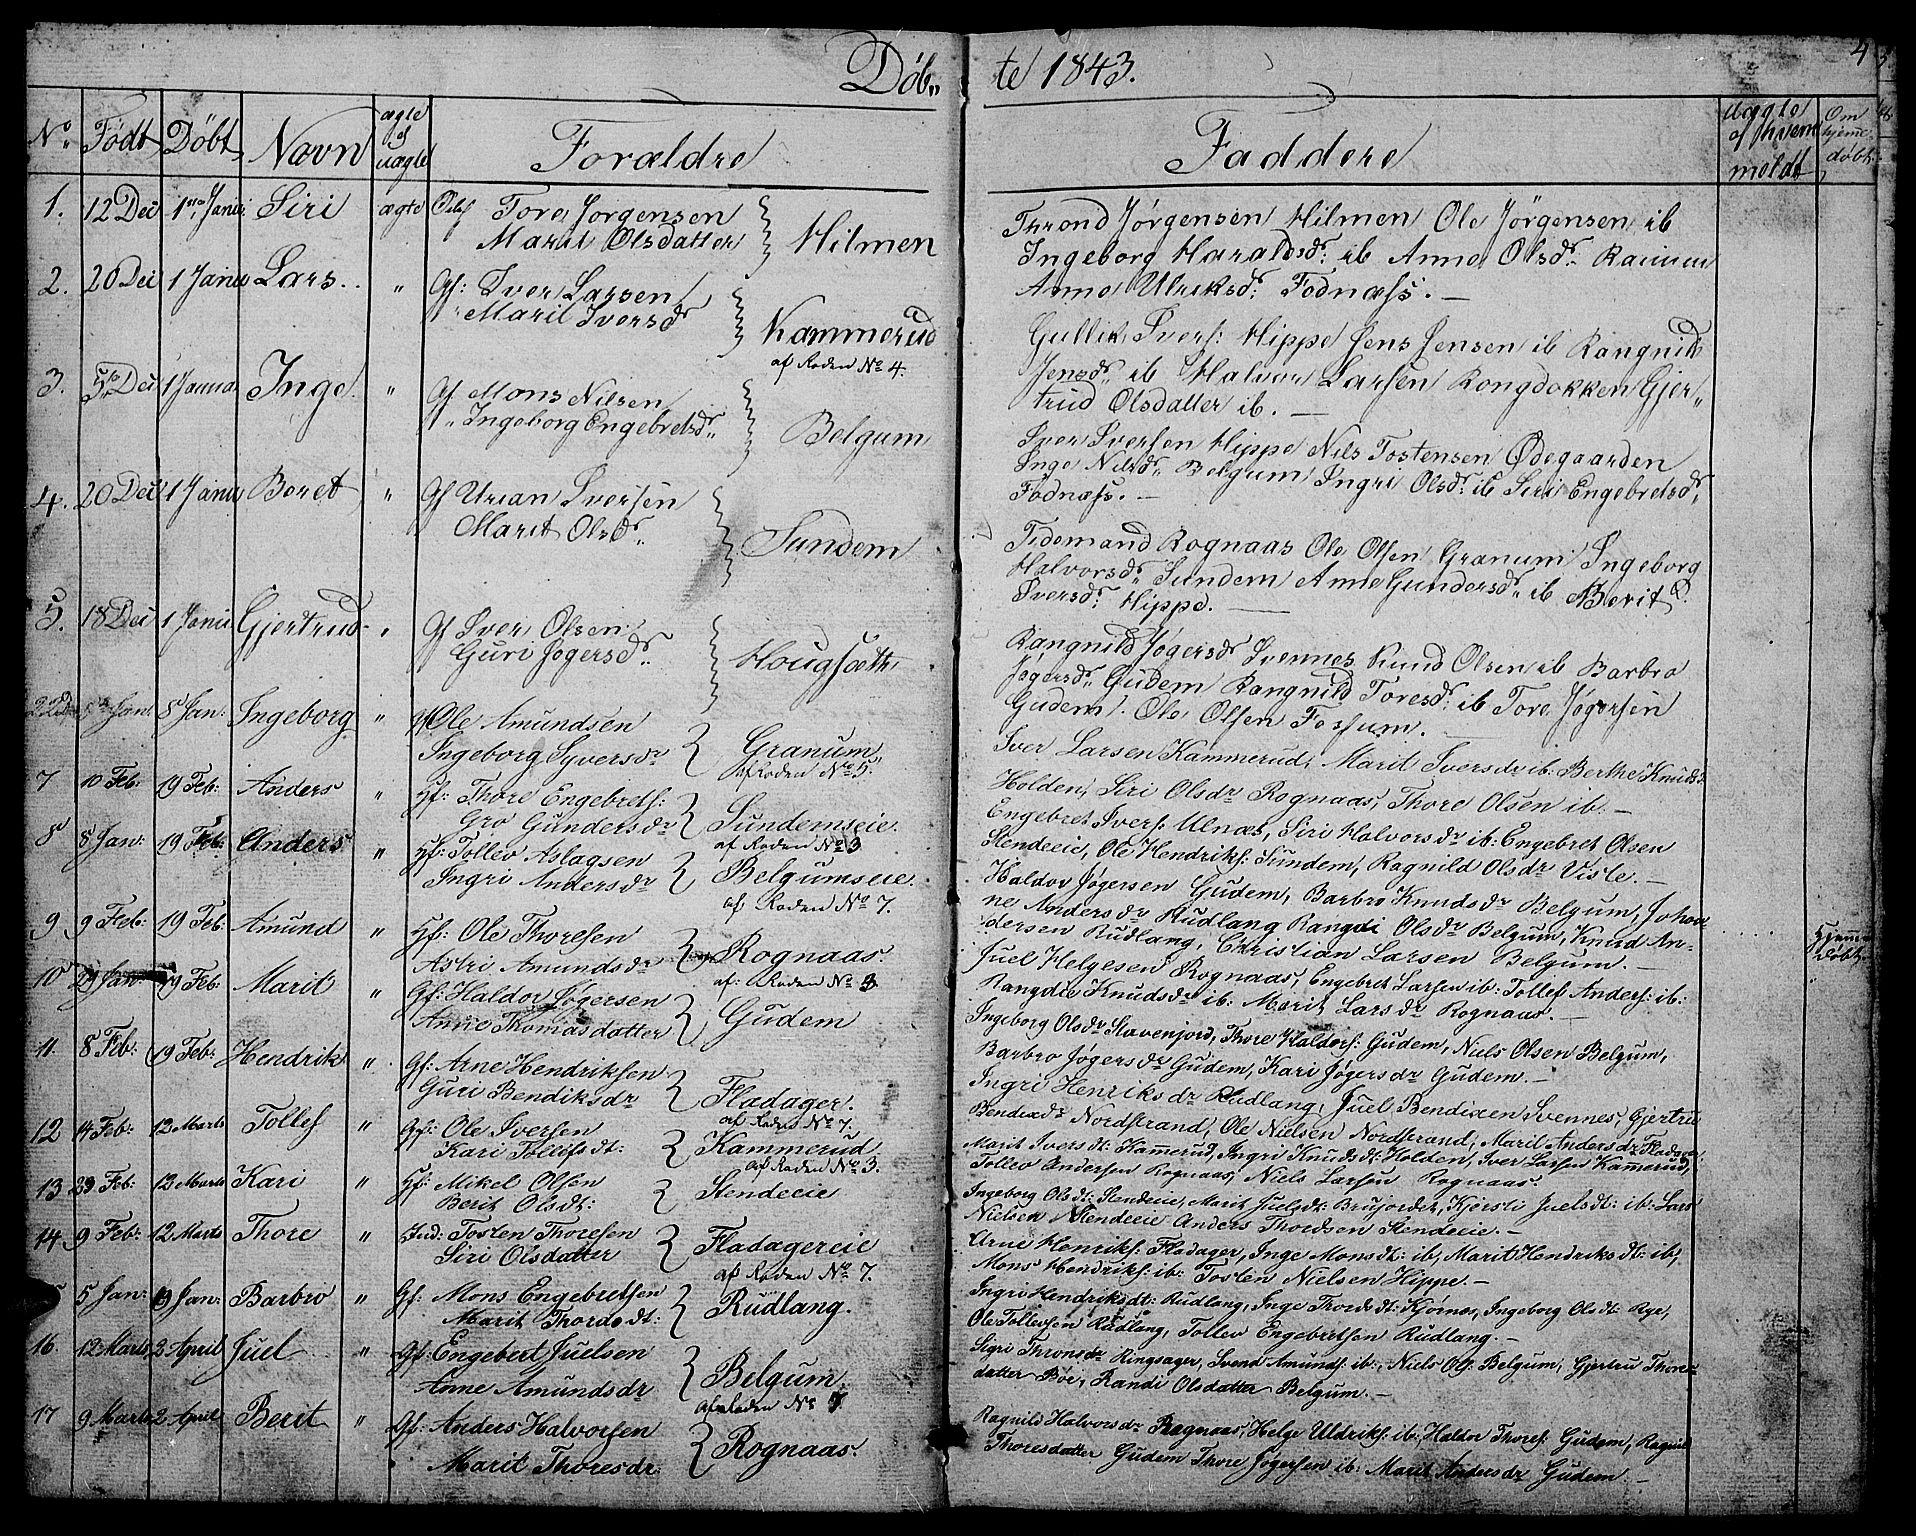 Døb„ te 1843. 4
No Født Døbt Navn ægte el uægte Forældre Faddere Uægte af hvem meldt Om hjemedøbt
1. 12 Dec 1ste Janu. Siri ægte Tore Jørgensen
Marit Olsdatter Hilmen
2. 20 Dec 1 Janu Lars.. „ Gf: Iver Larsen
Marit Iversdr Kammerud
af Roden No 4.
3. 5 Dec 1 Janua. Inge „ Gf Mons Nilsen
Ingeborg Engebretsdr. Belgum
4. 20 Dec 1 Janu Beret „ Gf Urian Iversen
Marit Olsdr. Sundem
5. 18 Dec 1 Janu Gjertrud „ Gf Iver Olsen
Guri Jøgersdr. Hougsæth
8 Jan: Ingeborg „ Ole Amundsen
Ingeborg Syversdr Granum
af Roden No 5.
7 10 Feb: 19 Feb: Anders „ Hf: Thore Engebrets:
Gro Gundersdr Sundemseie
af Roden No 3
8 8 Jan: 19 Feb: Anders „ Hf: Tollev Aslagsen
Ingri Andersdr Belgumseie.
af Roden No 7.
9 9 Feb: 19 Feb: Amund „ Hf: Ole Thoresen
Astri Amundsdr Rognaas
af: Roden No 3
10 Jan: 19 Feb: Marit „ Gf: Haldor Jøgersen
Anne Thomasdatter Gudem
11. 8 Feb: 19 Feb: Hendrik „ Gf: Arne Hendriksen
Guri Bendiksdr Fladager.
af Roden No 7.
12 14 Feb: 12 Marts Tollef „ Gf: Ole Iversen
Kari Tollifsdt: Kammerud
af Roden No 3.
13 23 Feb: 12 Marts Kari „ Hf: Mikel Olsen
Berit Olsdt: Stendeeie
14 9 Feb: 12 Marts Thore „ Ind: Tosten Thoresen
Siri Olsdatter Fladagereie
af Roden No 7.
5 Jan: Jan: Barbro „ Gf: Mons Engebretsen
Marit Thordsdt: Rudlang.
16. 12 Marts 2 April Juel „ Gf: Engebert Juelsen
Anne Amundsdr Belgum
af Roden No 7
17 9 Marts 2 April Berit „ Gf: Anders Halvorsen
Marit Thoresdr: Rognaas
Thrond Jørgensen Hilmen Ole Jörgensen ib
Ingeborg Haraldsdr: ib Anne Olsdr
Anne Ulriksdr: Fodnæss. —
Gullik Ivers: Hippe Jens Jensen ib Rangnild
Jensdr. ib Halvor Larsen Rongdokken Gjer„
trud Olsdatter ib. —
Iver Iversen Hippe Nils Tostensen Ødegaarden
Inge Nilsdr. Belgum Ingri Olsdr: ib Siri Engebretsdr,
Fodnæss. —
Tidemand Rognaas Ole Olsen Granum Ingeborg
Halvorsdr. Sundem Anne Gundersdr. ib Berit
Iversdr: Hippe. —
Rangnild Jøgersdr Svennes Knud Olsen ib Barbro
Jøgersdr. Gudem Rangnild Toresdr: ib Tore Jøgersen
Gudem. Ole Olsen Fossum. —
Iver Larsen Kammerud, Marit Iversdr ib: Berthe Knudsd
Holden, Siri Olsdr Rognaas, Thore Olsen ib. —
Engebret Ivers: Ulnæs, Siri Halvorsdr ib: Engebret Olsen
Stendeeie, Ole Hendriks: Sundem, Ragnild Olsdr Viste. —
Haldor Jøgersen Gudem, Barbro Knudsdr Belgum, Johan
ne Andersdr Rudlang Rangdi Olsdr Belgum, Knud An-
dersen Rudlang, Christian Larsen Belgum. — Hjemmedøbt
Juel Helgesen Rognaas, Engebret Larsen ib: Tollef Anders: ib:
Rangdie Knudsdr ib: Marit Larsdr Rognaas. —
Ingeborg Olsdr Stavenjord, Thore Haldors: Gudem, Niels Olsen Belgum,
Barbro Jøgersdr Gudem, Kari Jøgersdr Gudem. —
Ingri Henriksdr Rudlang, Juel Bendixen Svennes, Gjertru
Bendixdr Nordstrand, Ole Nielsen Nordstrand, Marit Andersdr Fladager.
Marit Iversdt: Kammerud, Ingri Knudsdt: Holden, Iver Larsen Kammerud,
Tollev Andersen Rognaas, Niels Larsen Rognaas.
Ingeborg Olsdt: Stendeeie, Marit Juelsdt: Brujordet, Kjersti Juelsdt: ib: Lars
Nielsen Stendeeie Anders Thordsen Stendeeie. —
Arne Henriks: Fladager, Inge Monsdt: ib, Marit Hendriksdt: ib,
Mons Hendriks: ib: Tosten Nielsen Hippe. —
Ingri Hendriksdt: Rudlang, Inge Thordsdt: Kjørnes, Ingeborg Olsdt: Rye,
Ole Tollevsen Rudlang, Tollev Engebertsen Rudlang. —
Sigri Thronsdr Ringsager, Svend Amunds: ib:, Niels Ols: Belgum, Gjertru Thores
datter Bøe, Randi Olsdatter Belgum. —
Ragnild Halvorsdr Rognaas, Helge Uldriks: ib: Haldor Thores: Gudem, Ragnil
Thoresdatter Gudem Thore Jøgersen ib: Marit Andersdr Gudem. —